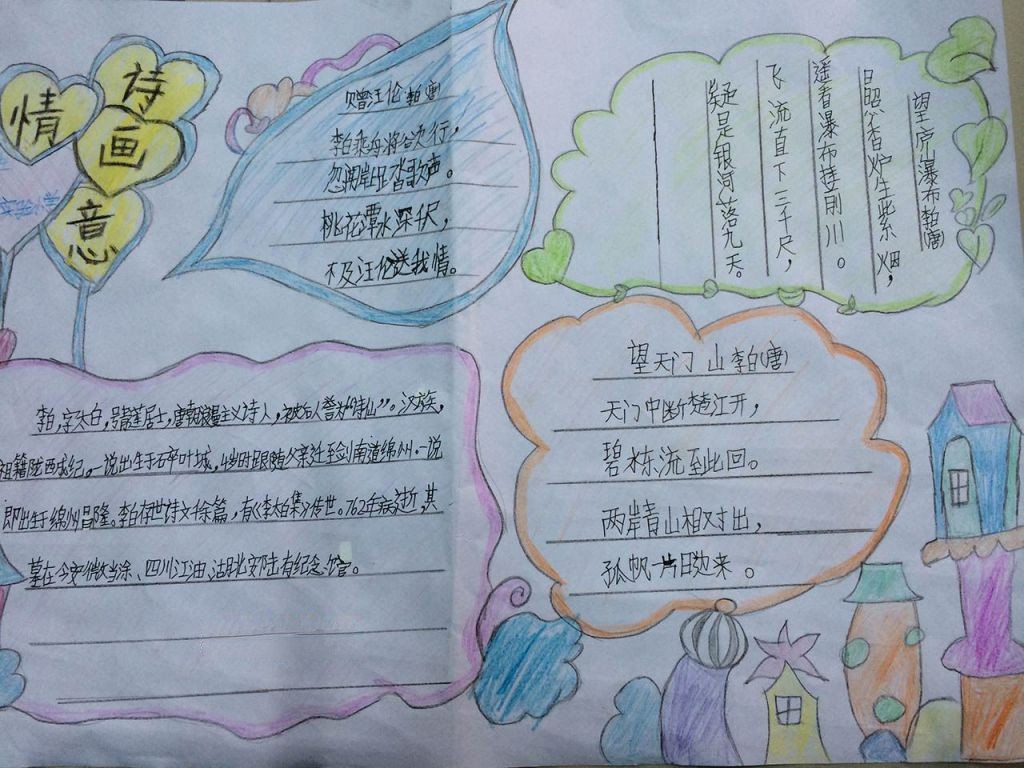 诗
情
画
意
赠汪伦 李白(唐)
李白乘舟将欲行，
忽闻岸上踏歌声。
桃花潭水深千尺，
不及汪伦送我情。
望庐瀑布 李白(唐)
日照香炉生紫烟，
遥看瀑布挂前川。
飞流直下三千尺，
疑是银河落九天。
李白，字太白，号青莲居士，唐朝浪漫主义诗人，被后人誉为“诗仙”。汉族，
祖籍陇西成纪。一说出生于碎叶城，4岁时跟随父亲迁至剑南道绵州。一说
即出生于绵州昌隆。李白存世诗文千余篇，有《李太白集》传世。762年病逝，其
墓在今安徽当涂、四川江油、湖北安陆有纪念馆。
望天门山 李白(唐)
天门中断楚江开，
碧水东流至此回。
两岸青山相对出，
孤帆一片日边来。